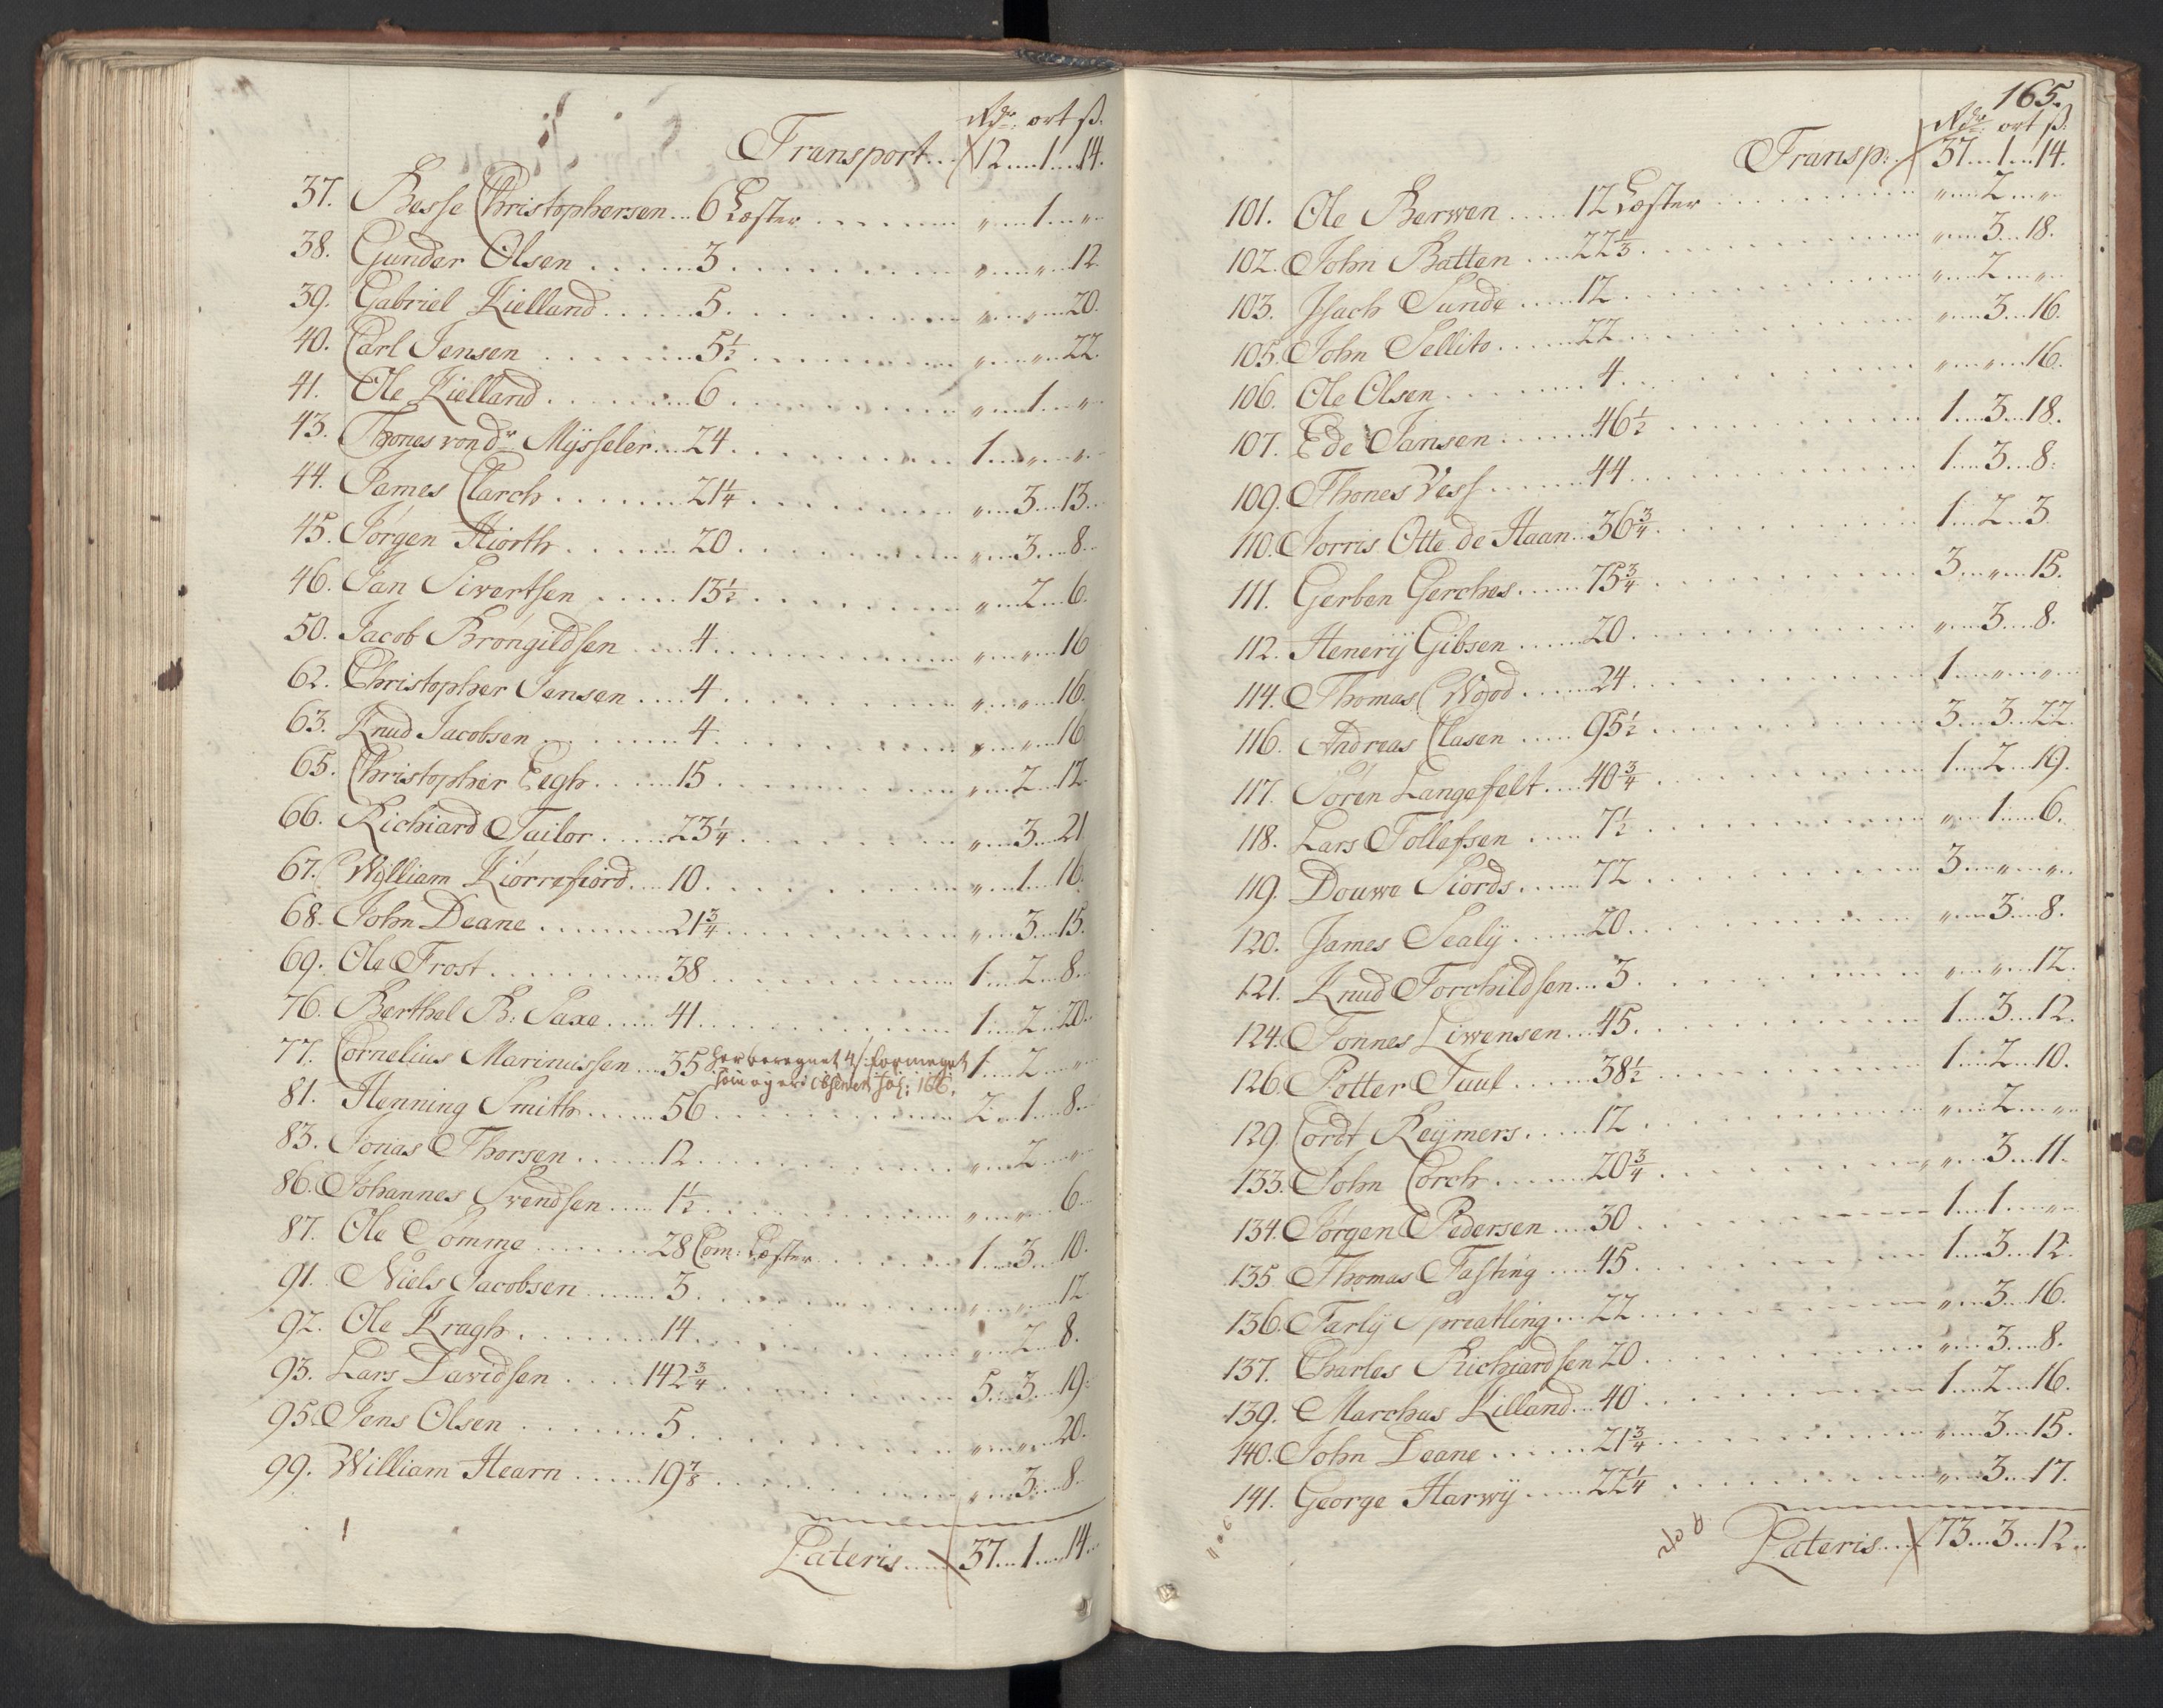 Rdr: ort ß.
Transport... 12....1....14.
37. Besse Christophersen... 6 Læster ....... „....1....„
38. Gunder Olsen ......3......... „....„....12.
39. Gabriel Kielland......5......... „....„....20.
40. Carl Jensen ......5½......... „....„....22.
41. Ole Kielland......6......... „....1....„
43. Thones von dr Mÿsseler...24......... 1....„....„
44. James Clarch.......21¼......... „....3....13.
45. Jørgen Hiorth......20......... „....3....8.
46. Jan Sivertsen.....13½......... „....2....6.
50. Jacob Brøngildsen....4......... „....„....16
62. Christopher Jensen....4......... „....„....16.
63. Knud Jacobsen......4......... „....„....16
65. Christopher Eegh.....15......... „....2....12.
66. Richiard Tailor.....23¼......... „....3....21
67. William Kiørrefiord....10......... „....1....16.
68. John Deane.......21¾......... „....3....15.
69. Ole Frost.........38......... 1....2....8.
76. Berthel B: Saxe.....41......... 1....2....20.
77. Cornelius Marinussen...35 1....2....„
her beregnet 4 ß: formeget
som og er observert fol: 166.
81. Henning Smith......56......... 2....1....8.
83. Jonas Thorsen.....12......... „....2....„
86. Johannes Svendsen....1½......... „....„....6.
87. Ole Somme.......28 Com: Læster....... 1....3....10.
91. Niels Jacobsen......3......... „....„....12
92. Ole Kragh.......14......... „....2....8.
93. Lars Davidsen....142¾......... 5....3....19.
95. Jens Olsen.......5......... „....„....20.
99. William Hearn.....19⅞......... „....3....8.
Lateris..... 37....1....14.
165.
Rdr: ort ß:
Transp:.. 37....1....14.
101. Ole Berwen.....12 Læster......... „....2....„
102. John Batten....22⅓......... „....3....18.
103. Jsach Sunde.....12......... „....2....„
105. John Sellito......22......... „....3....16.
106. Ole Olsen.......4......... „....„....16.
107. Ede Jansen......46½......... 1....3....18.
109. Thones Vess......44......... 1....3....8.
110. Jorris Otte de Haan..36¾......... 1....2....3.
111. Gerben Gerches.....75¾......... 3....„....15.
112. Henerÿ Gibsen.....20......... „....3....8.
114. Thomas Wood.....24......... 1....„....„
116. Andreas Clasen.....95½......... 3....3....22.
117. Søren Langefelt....40¾......... 1....2....19.
118. Lars Tollefsen....7½......... „....1....6.
119. Douwe Siords.....72......... 3....„....„
120. James Sealÿ.....20......... „....3....8.
121. Knud Torchildsen...3......... „....„....12.
124. Tonnes Siwensen...45......... 1....3....12.
126. Potter Juul......38½......... 1....2....10.
129. Cordt Reÿmers.....12......... „....2....„
133. John Corch......20¾......... „....3....11.
134. Jørgen Pedersen....30......... 1....1....„
135 Thomas Fasting....45......... 1....3....12.
136. Tarlÿ Spreatling...22......... „....3....16.
137. Charles Richiardsen 20......... „....3....8.
139. Marchus Killand...40......... 1....2....16.
140. John Deane......21¾......... „....3....15.
141. George Harwÿ.....22¼......... „....3....17.
Lateris.... 73....3....12..